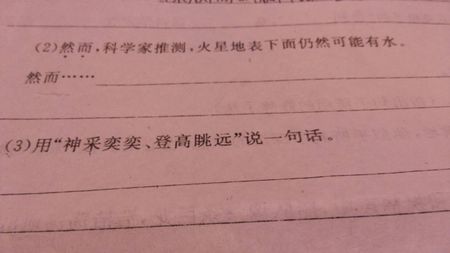 (2)然而,科学家推测,火星地表下面仍然可能有水。
然而……
(3)用“神采奕奕、登高眺远”说一句话。